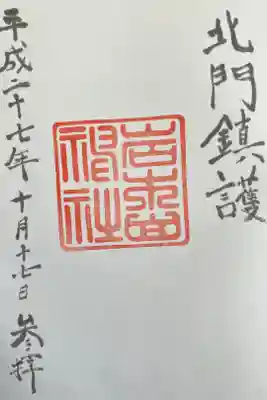 北門鎮護
岩木山
神社
平成二十七年十月十七日参拝